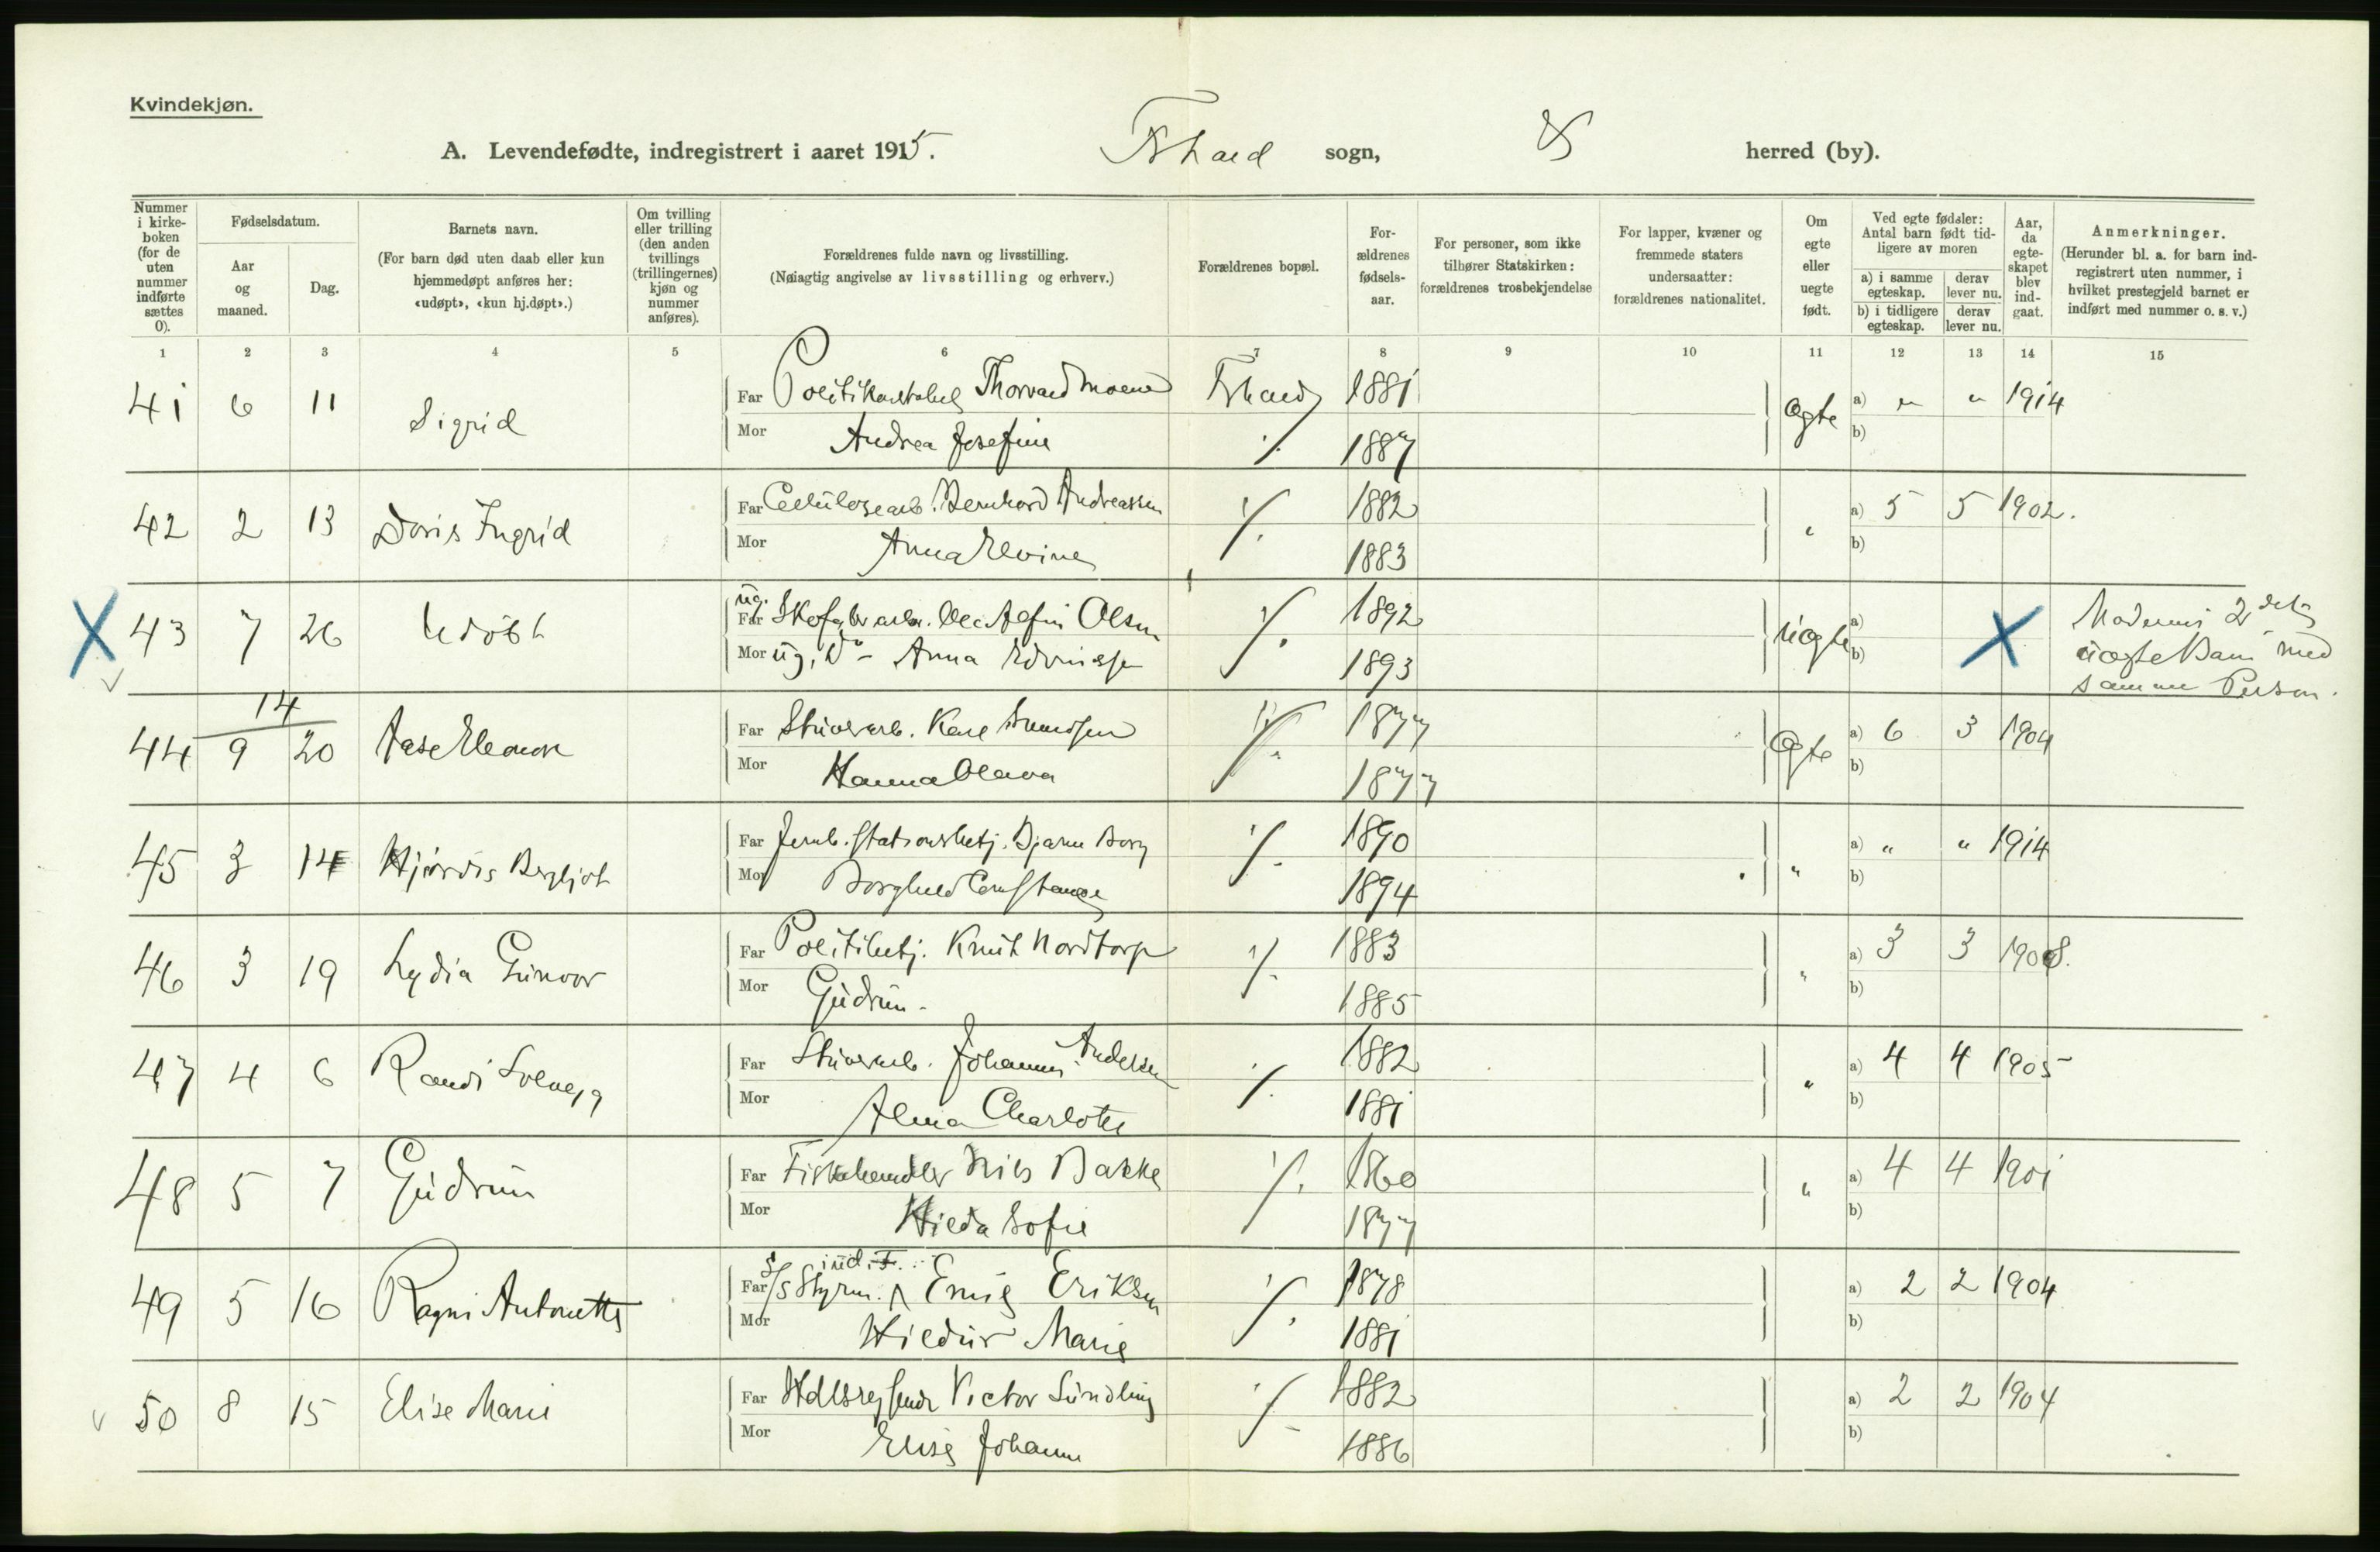 Kvindekjøn.
A. Levendefødte, indregistrert i aaret 1915. Fshald sogn, herred (by).
Nummer i kirkeboken (for de uten nummer indførte sættes 0).
Fødselsdatum.
Aar og maaned.
Dag.
Barnets navn.
(For barn død uten daab eller kun hjemmedøpt anføres her: «udøpt», «kun hj.døpt».)
Om tvilling eller trilling (den anden tvillings (trillingernes) kjøn og nummer anføres).
Forældrenes fulde navn og livsstilling.
(Nøiagtig angivelse av livsstilling og erhverv.)
Forældrenes bopæl.
Forældrenes fødselsaar.
For personer, som ikke tilhører Statskirken: forældrenes trosbekjendelse
For lapper, kvæner og fremmede staters undersaatter: forældrenes nationalitet.
Om egte eller uegte født.
Ved egte fødsler: Antal barn født tidligere av moren
a) i samme egteskap. derav lever nu.
b) i tidligere egteskap. derav lever nu.
Aar, da egteskapet blev indgaat.
Anmerkninger.
(Herunder bl. a. for barn indregistrert uten nummer, i hvilket prestegjeld barnet er indført med nummer o. s. v.)
1 2 3 4 5 6 7 8 9 10 11 12 13 14 15
41 6 11 Sigrid Far Politikonstabel Thorvald Moene Fshald 1881 Ægte a) " " 1914
Mor Andrea Josefine ./. 1887 b)
42 2 13 Doris Ingrid Far Celulosearb. Bernhard Andreassen ./. 1882 " a) 5 5 1902.
Mor Anna Elvine 1883 b)
X 43 7 26 Udöbt ug. Far Skofabr.arb. Ole Alfin Olsen ./. 1892 uægte a) X Moderens 2det
Mor ug. Do - Anna 1893 b) uægte Barn med
samme Person.
14
44 9 20 Aase Eleonore Far Stuverarb. Karl ./. 1877 Ægte a) 6 3 1904
Mor Hanna Olava 1877 b)
45 3 14 Hjördis Bergljot Far Jernb.stationsbetj. Bjarne Borg ./. 1890 " a) " " 1914
Mor Borghild Constanse 1894 b)
46 3 19 Lydia Gunvor Far Politibetj. Knut Nordtorp ./. 1883 " a) 3 3 1908.
Mor Gudrun - 1885 b)
47 4 6 Randi Solveig Far Stuverarb. Johannes Andersen ./. 1882 " a) 4 4 1905
Mor Alma Charlotte 1881 b)
48 5 7 Gudrun Far Fiskehandler Nils Bakke ./. 1860 " a) 4 4 1901
Mor Hilda Sofie 1877 b)
49 5 16 Ragni Antonette Far S/S Styrm. Emil Eriksen ./. 1878 a) 2 2 1904
Mor Hildur Marie 1881 b)
50 8 15 Elise Marie Far Hdlsreisende Victor Lundling ./. 1882 a) 2 2 1904
Mor Elise Johanne 1886 b)